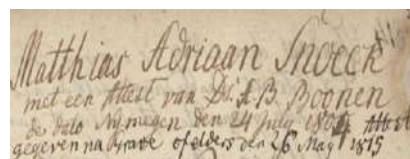 Matthias Adriaan Snoeck
met een Attest van Ds. A. B. Boonen
de dato Nymegen den 24 July 1804 Attest
gegeven na Grave of elders den 26 May 1815